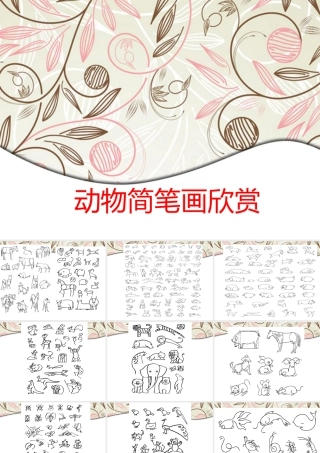 动物简笔画欣赏